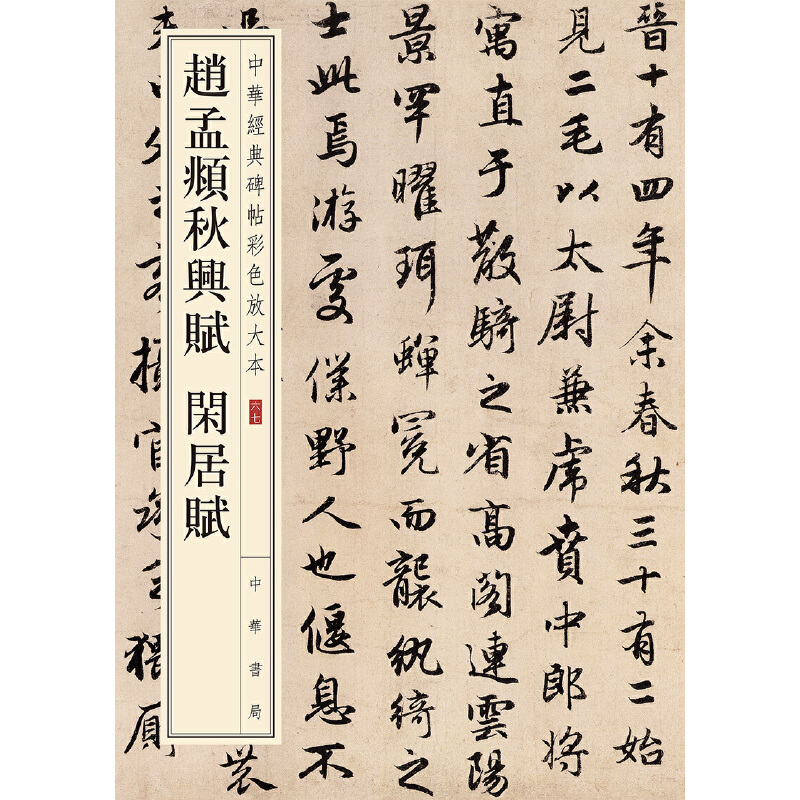 晉十有四年余春秋三十有二始
見二毛以太尉兼虎賁中郎将
寓直于散騎之省高閣連雲陽
景罕曜珥蟬冕而襲紈綺之
士此焉游處僕野人也偃息不
農
夫田父之客攝官承乏猥厠
中華經典碑帖彩色放大本
六七
中華書局
趙孟頫秋興賦 閑居賦